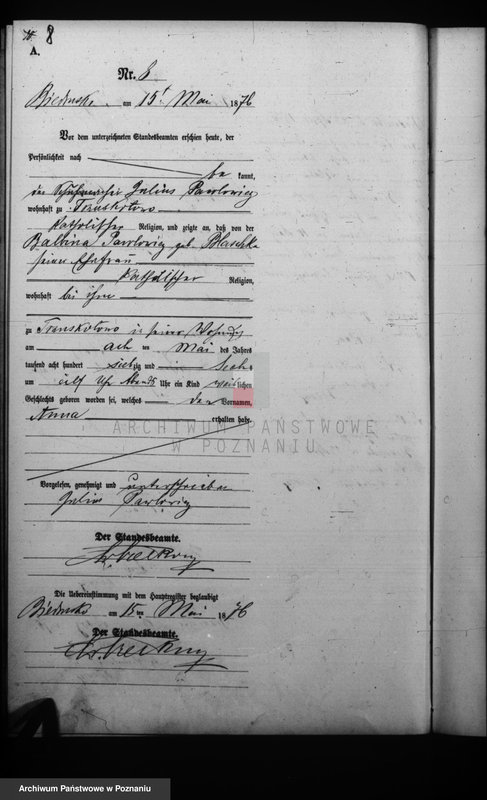 8
A.
Nr. 8
Biedrusko am 15t Mai 1876
Vor dem unterzeichneten Standesbeamten erschien heute, der
Persönlichkeit nach
be kannt,
der Julius Pawlowicz
wohnhaft zu
katholischer Religion, und zeigte an, daß von der
Balbina Pawlowicz geb. Blaschke
seiner Ehefrau
katholischer Religion,
wohnhaft bei ihm
zu in seiner Wohnung
am ach ten Mai des Jahres
tausend acht hundert siebzig und Sechs
um elf Uhr Abends Uhr ein Kind weiblichen
Geschlechts geboren worden sei, welches den Vornamen
Anna erhalten habe.
Vorgelesen, genehmigt und unterschrieben
Julius Pawlowicz
Der Standesbeamte.
Die Uebereinstimmung mit dem Hauptregister beglaubigt
Biedrusko am 15 ten Mai 1876
Der Standesbeamte.
ARCHIWUM PAŃSTWOWE
W POZNANIU
Archiwum Państwowe w Poznaniu